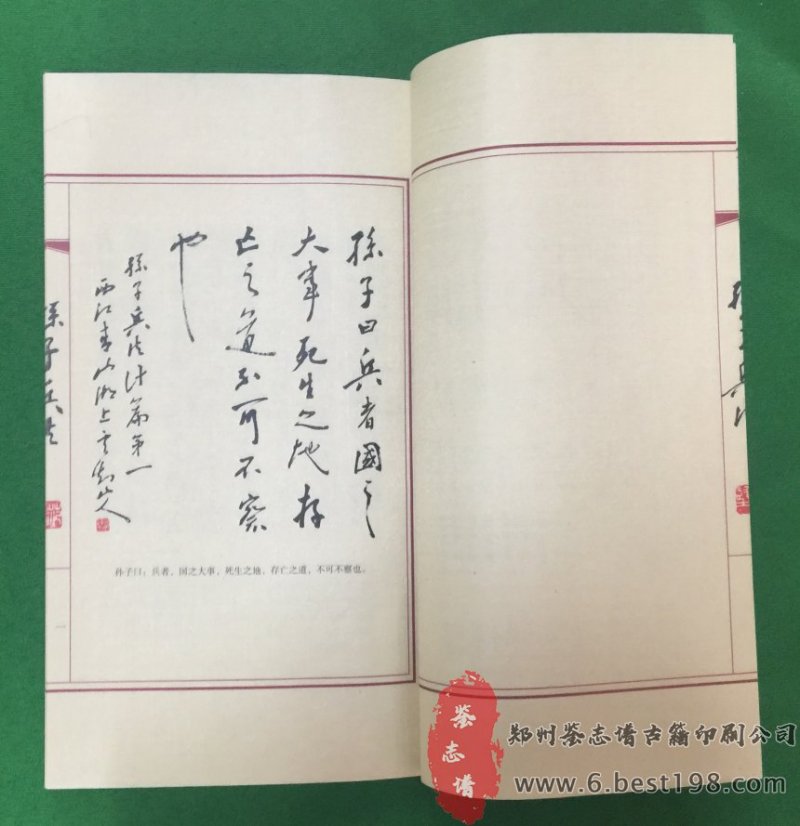 孫子曰兵者國之
大事死生之地存
亡之道不可不察
也
孫子兵法計篇第一
西江青山湖上雲山人
孙子曰：兵者，国之大事，死生之地，存亡之道，不可不察也。
孫子兵法
孫子兵法
鉴志谱
郑州鉴志谱古籍印刷公司
www.6.best198.com